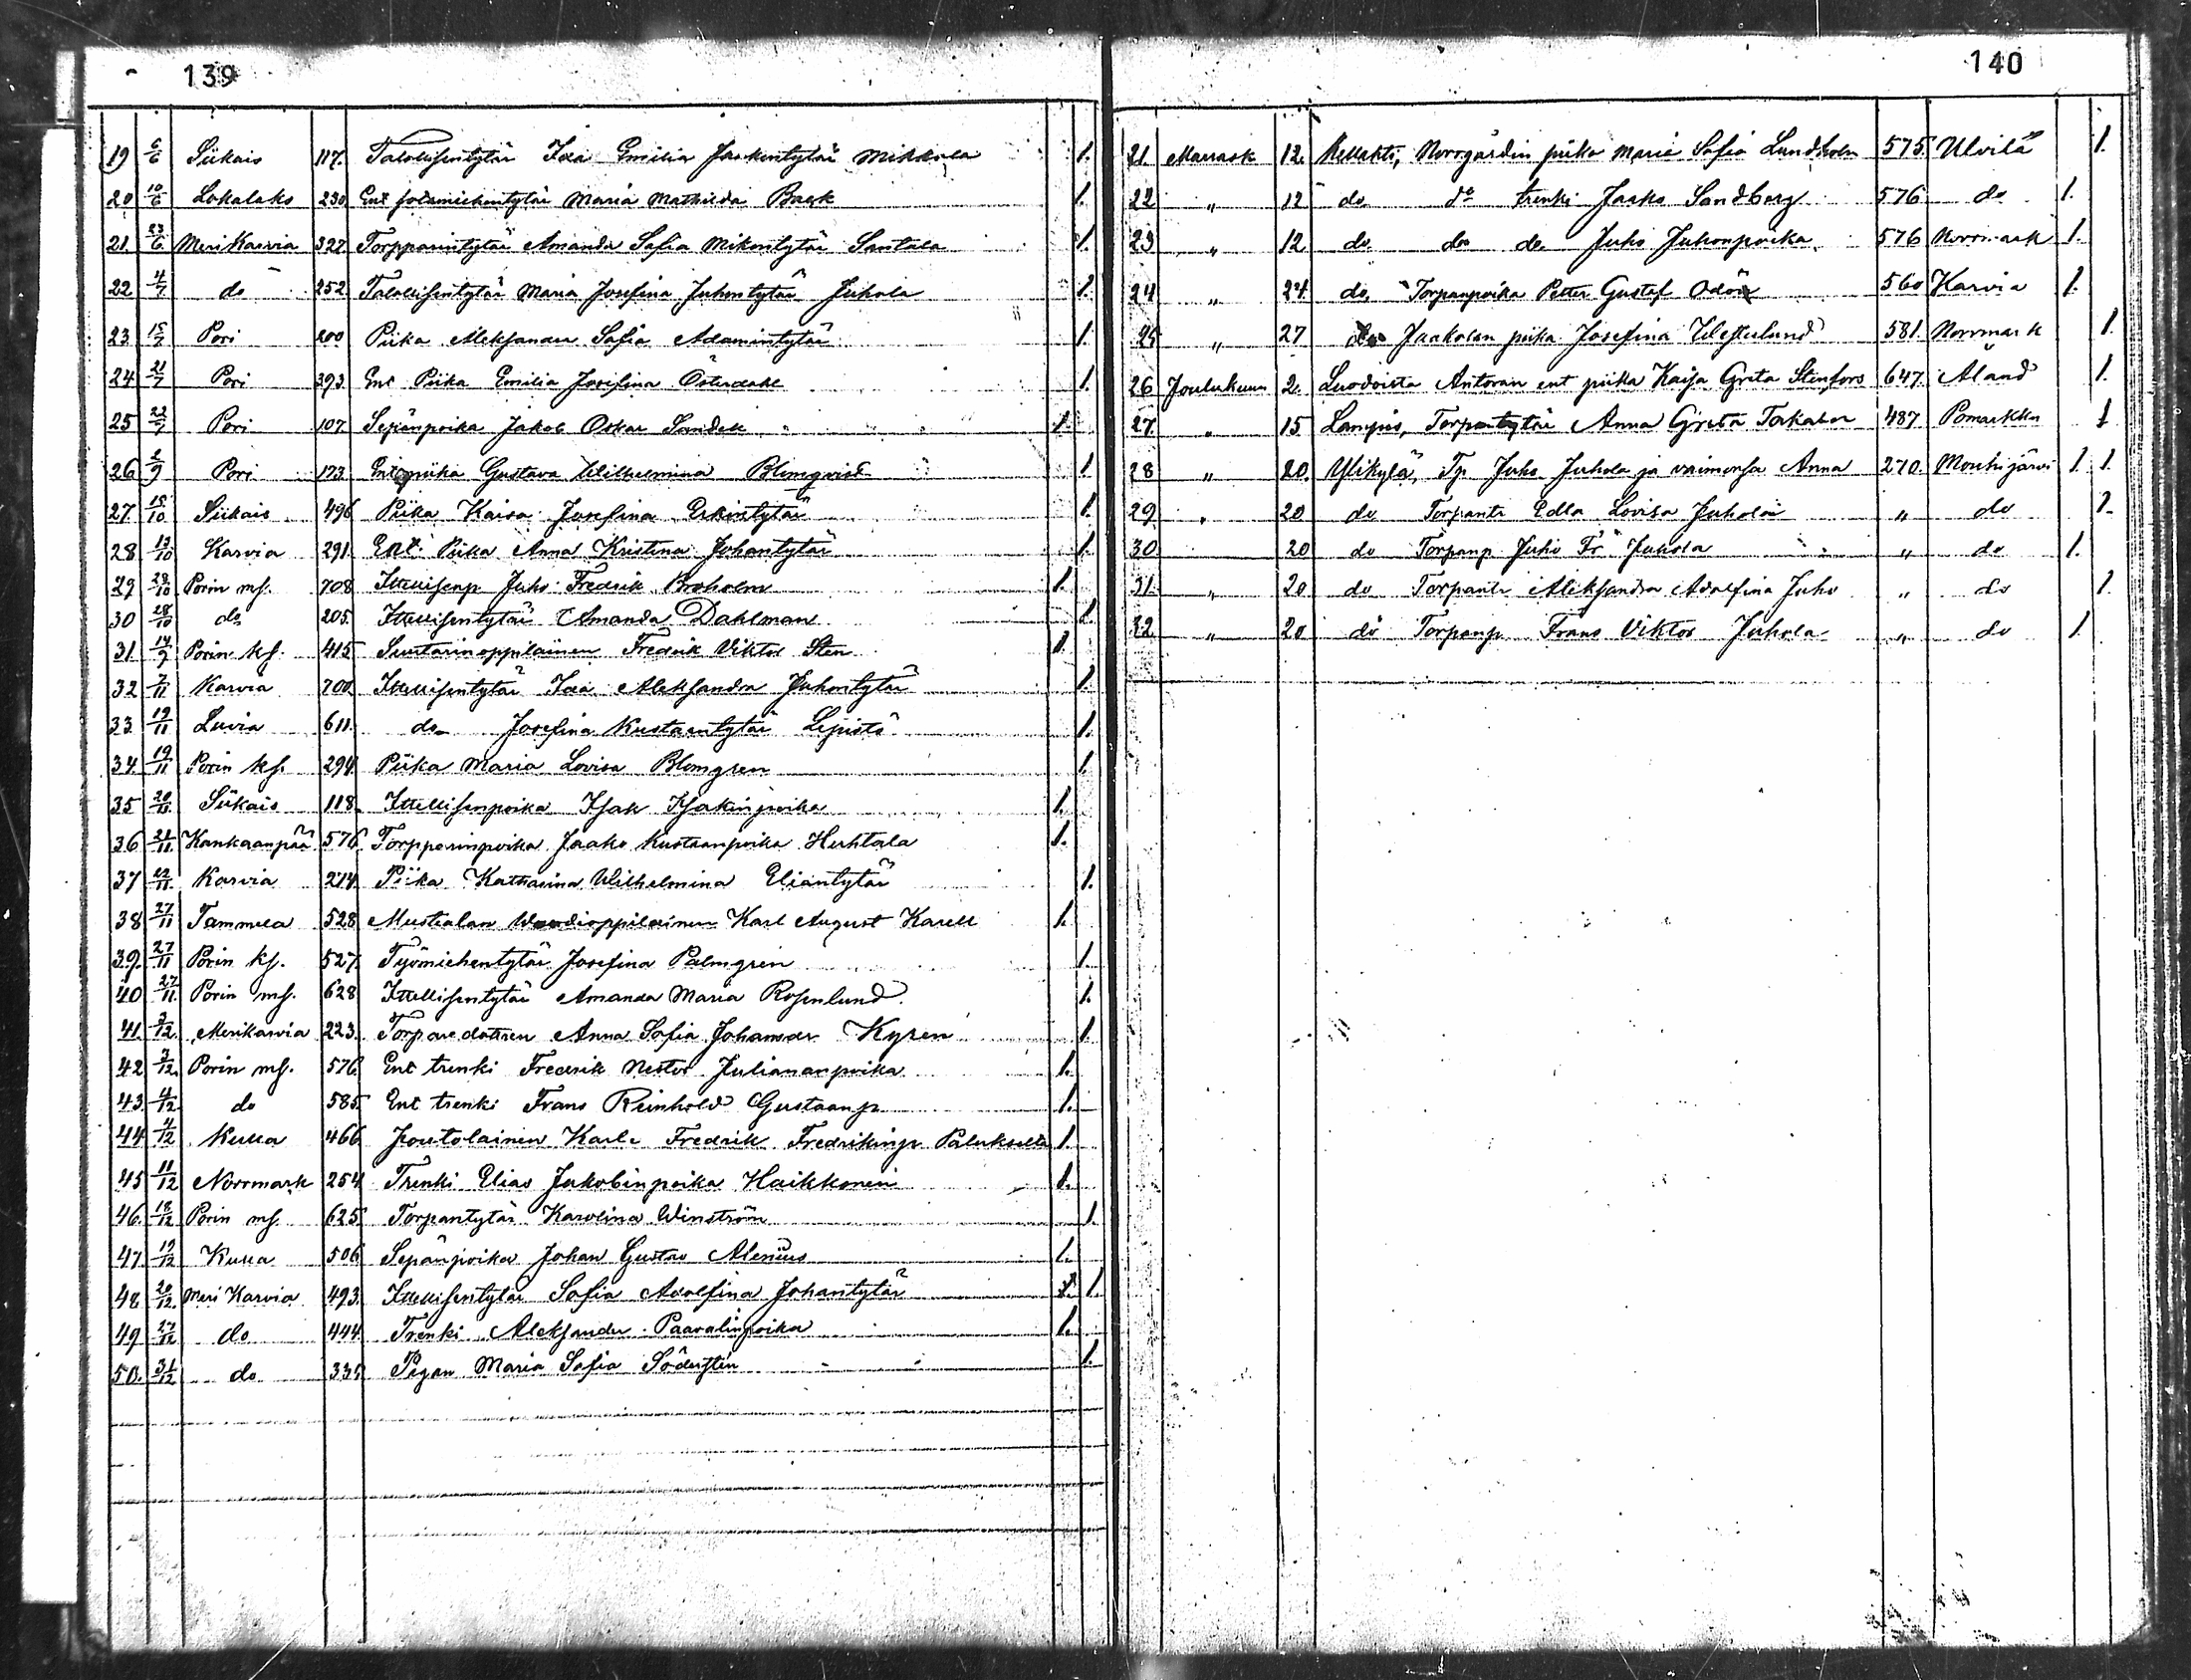 139
19 6/6 Siikais 117. Talollisentytär Ida Emilia Jaakontytär Mikkola 1.
20 10/6 Lokalaks 230 Ent sotamiehentytär Maria Mathilda Back 1.
21. 23/6 Meri Karvia 327. Torpparintytär Amanda Sofia Mikontytär Santala 1.
22 4/7 do 252 Talollisentytär Maria Josefina Juhontytär Juhola 1.
23 15/7 Pori 200 Piika Aleksandra Sofia Adamintytär 1.
24 21/7 Pori 393. Ent Piika Emilia Josefina Österdahl 1.
25 22/7 Pori 107. Sepänpoika Jakob Oskar Sandell 1.
26 2/9 Pori 173. Ent piika Gustava Wilhelmina Blomqvist 1.
27 15/10 Siikais 496 Piika Kaisa Josefina Erkintytär 1.
28 13/10 Karvia 291. Ent. Piika Anna Kristina Johantytär 1.
29 28/10 Porin ms. 708 Itsellisenp Juho Fredrik Broholm 1.
30 28/10 do 205. Itsellisentytär Amanda Dahlman 1.
31 14/9 Porin ks. 415 Suutarinoppilainen Fredrik Viktor Sten 1.
32 7/11 Karvia 700. Itsellisentytär Ida Aleksandra Juhontytär 1.
33 19/11 Luvia 611. do Josefina Kustaantytär Lepistö 1.
34. 19/11 Porin ks. 294. Piika Maria Lovisa Blomgren 1.
35 20/11 Siikais 118. Itsellisenpoika Isak Isakinpoika 1.
36 21/11. Kankaanpää 576. Torpparinpoika Jaako Kustaanpoika Huhtala 1.
37 22/11. Karvia 214. Piika Katharina Wilhelmina Eliantytär 1.
38 27/11 Tammela 528 Mustialan Woudioppilainen Karl August Karell 1.
39. 27/11 Porin ks. 527. Työmiehentytär Josefina Palmgren 1.
40 27/11. Porin ms. 628 Itsellisentytär Amanda Maria Rosenlund. 1.
41. 3/12. Merikarvia 223. Torparedottren Anna Sofia Johansdr Kyren 1.
42 3/12. Porin ms. 576. Ent trenki Fredrik Nestor Juliananpoika 1.
43. 4/12 do 585. Ent trenki Frans Reinhold Gustaanp 1.
44 4/12 Kulla 466 Joutolainen Karle Fredrik Fredrikinp Palukselta 1.
45 11/12 Norrmark 254. Trenki Elias Jakobinpoika Haikkonen 1.
46. 18/12 Porin ms. 625. Torpantytär Karolina Winström 1.
47. 19/12 Kulla 506 Sepänpoika Johan Gustav Alenius 1.
48 20/12. Meri Karvia 493. Itsellisentytär Sofia Adolfina Johantytär 1. 1.
49. 27/12 do 444. Trenki Aleksander Paavalinpoika 1.
50. 31/12 do 335 Pigan Maria Sofia Söderstén 1.
140
21 Marrask 12. Kellahti, Norrgårdin piika Maria Sofia Lundholm 575. Ulvila 1.
22 " 12 do do trenki Jaako Sandberg 576 do 1.
23 " 12 do do do Juho Juhonpoika 576 Norrmark 1.
24 " 24 do, Torpanpoika Petter Gustaf Odön 560 Karvia 1.
25 " 27 do Jaakolan piika Josefina Westerlund 581. Norrmark 1.
26 Joulukuun 2. Luodoista Antoran ent piika Kaisa Greta Stenfors 647. Åland 1.
27. " 15 Lampis, Torpantytär Anna Greta Takalan 487 Pomarkku 1
28 " 20. Ylikylä, Tp Juho Juhola ja vaimonsa Anna 270. Mouhijärvi 1. 1.
29 " 20 do Torpantr Edla Lovisa Juhola " do 1.
30 20 do Torpanp Juho Fr. Juhola " do 1.
31. " 20 do Torpantr Aleksandra Adolfina Juho " do 1.
32. " 20 do Torpanp Frans Viktor Juhola " do 1.